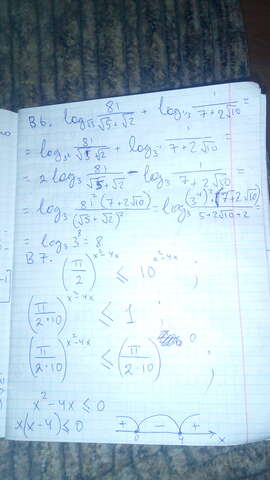 В6. log_√3 81/(√5+√2) + log_1/3 1/(7+2√10) =
= log_3^½ 81/(√5+√2) + log_3^-1 1/(7+2√10) =
= 2log_3 81/(√5+√2) - log_3 1/(7+2√10) =
= log_3 81²(7+2√10)/(√5+√2)² = log_3 (3⁴)²·(7+2√10)/(5+2√10+2) =
= log_3 3⁸ = 8
В7.
(π/2)^(x²-4x) ≤ 10^(x²-4x) ;
(π/(2·10))^(x²-4x) ≤ 1 ;
(π/(2·10))^(x²-4x) ≤ (π/(2·10))^0 ;
x²-4x ≤ 0
x(x-4) ≤ 0 + - +
0 4 x